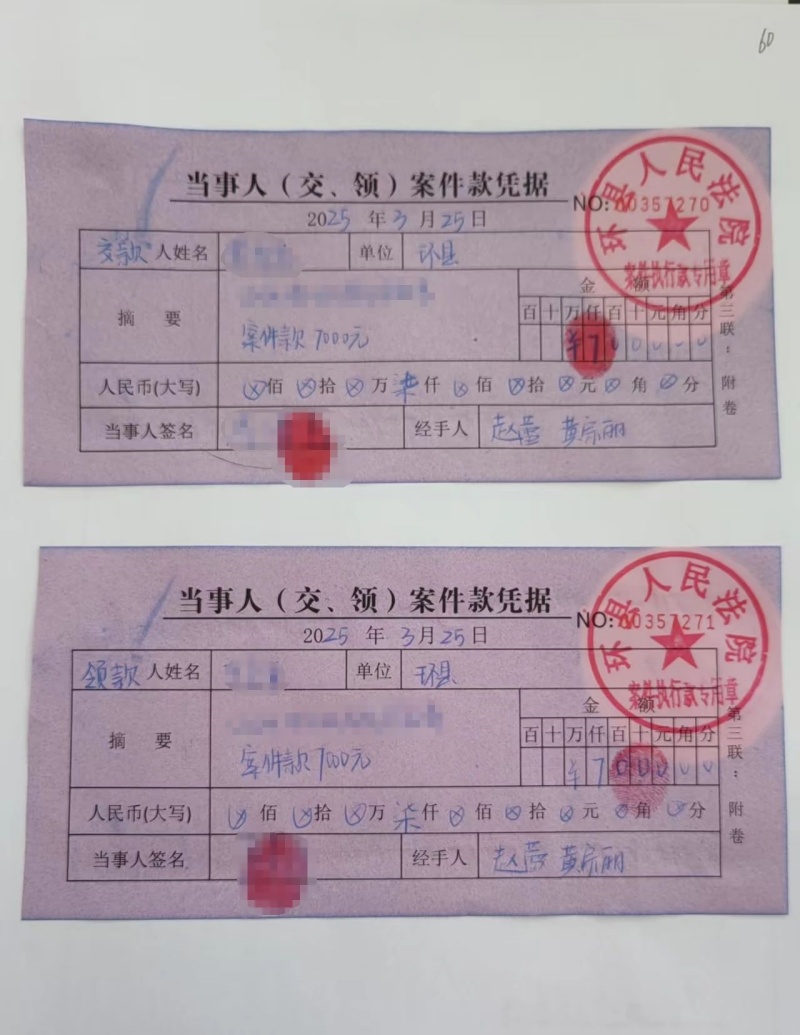 60
当事人（交、领）案件款凭据
NO:00357270
2025 年 3 月 25 日
环县人民法院
案件执行款专用章
交款 人姓名 单位 环县
摘 要 金 额
百 十 万 仟 百 十 元 角 分
案件款 7000元
¥ 7 0 0 0 0 0
人民币(大写) ⊗ 佰 ⊗ 拾 ⊗ 万 柒 仟 ⊗ 佰 ⊗ 拾 ⊗ 元 ⊗ 角 ⊗ 分
当事人签名 经手人 黄宗丽
第三联：附卷
当事人（交、领）案件款凭据
NO:00357271
2025 年 3 月 25 日
环县人民法院
案件执行款专用章
领款 人姓名 单位 环县
摘 要 金 额
百 十 万 仟 百 十 元 角 分
案件款 7000元
¥ 7 0 0 0 0 0
人民币(大写) ⊗ 佰 ⊗ 拾 ⊗ 万 柒 仟 ⊗ 佰 ⊗ 拾 ⊗ 元 ⊗ 角 ⊗ 分
当事人签名 经手人 黄宗丽
第三联：附卷